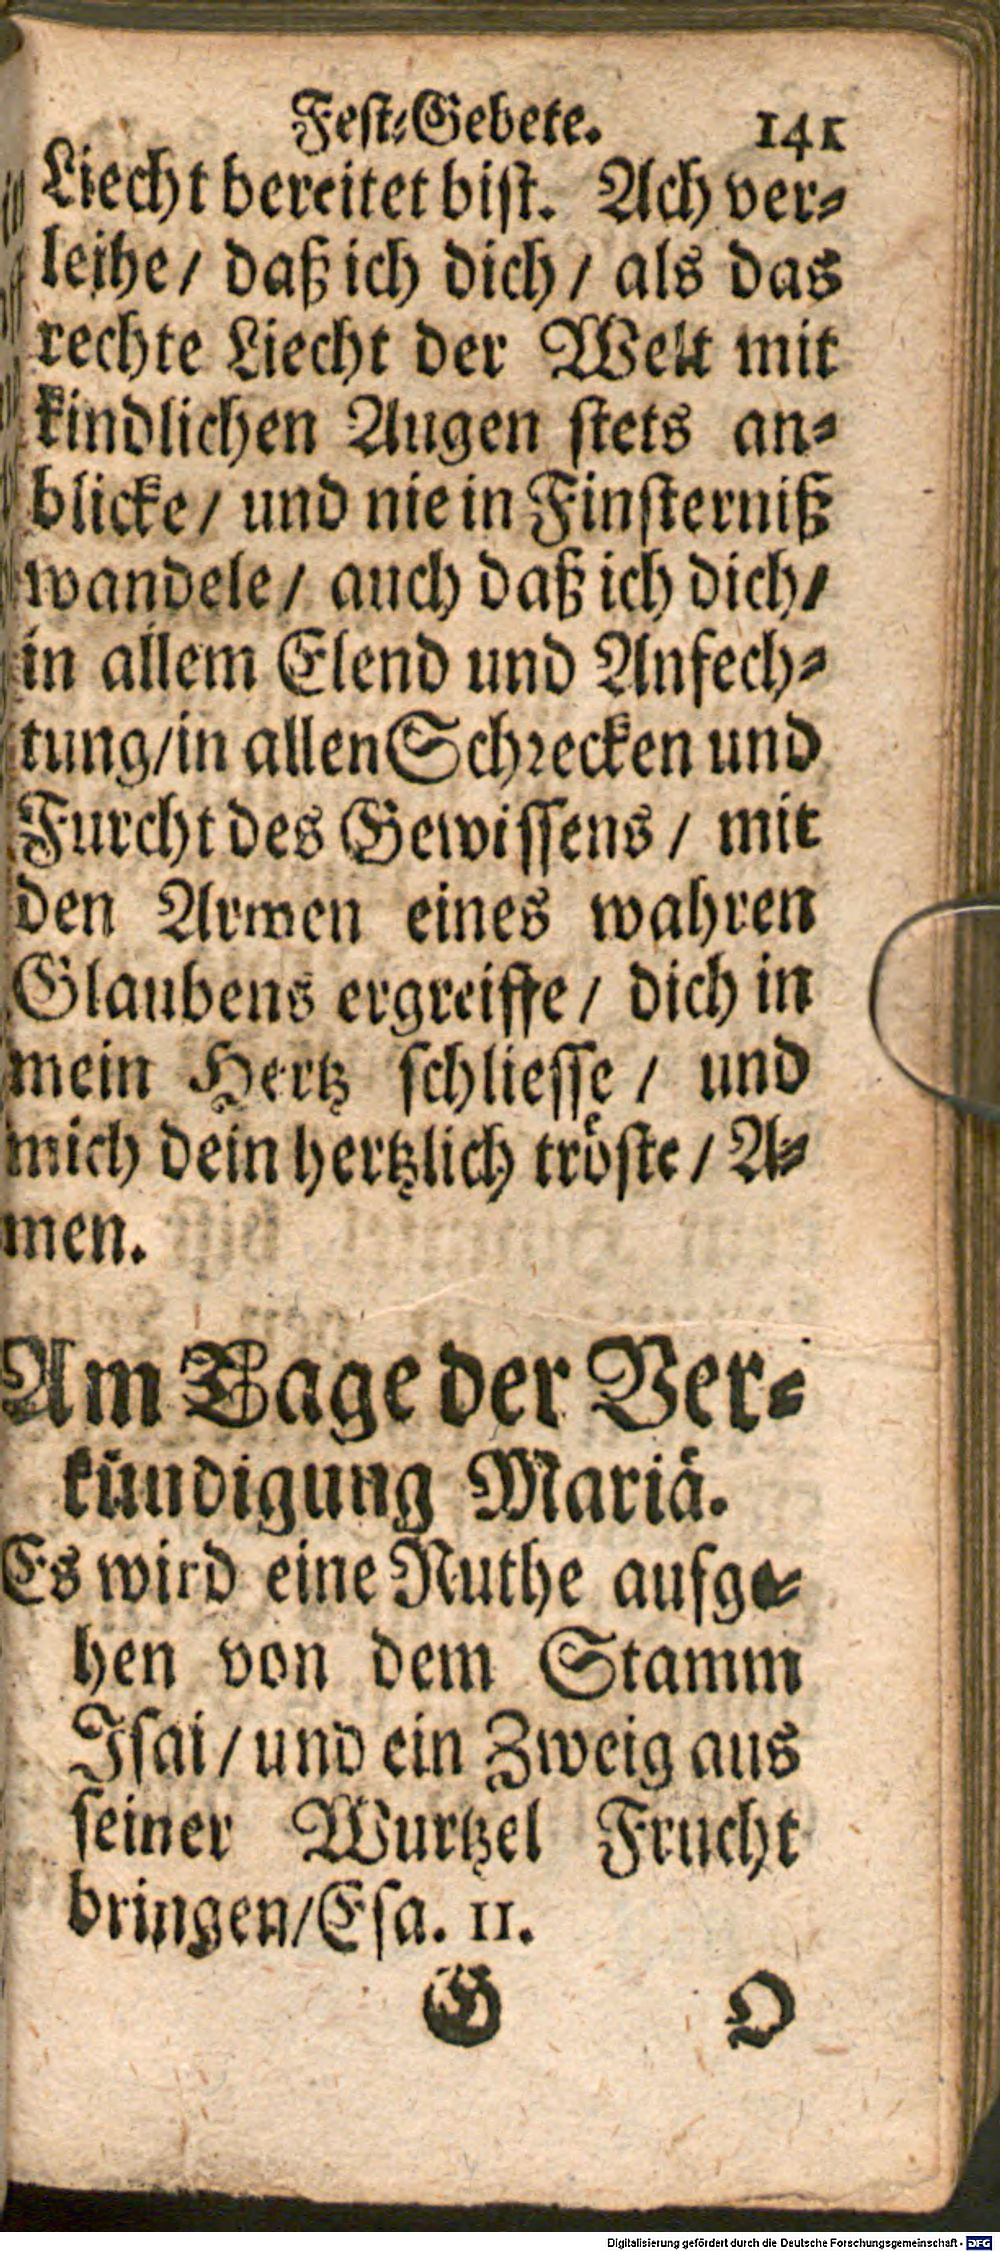 Fest-Gebete. 141
Liecht bereitet bist. Ach ver-
leihe / daß ich dich / als das
rechte Liecht der Welt mit
kindlichen Augen stets an-
blicke / und nie in Finsterniß
wandele / auch daß ich dich /
in allem Elend und Anfech-
tung / in allen Schrecken und
Furcht des Gewissens / mit
den Armen eines wahren
Glaubens ergreiffe / dich in
mein Hertz schliesse / und
mich dein hertzlich tröste / A-
men.
Am Tage der Ver-
kündigung Mariä.
Es wird eine Ruthe aufge-
hen von dem Stamm
Isai / und ein Zweig aus
seiner Wurtzel Frucht
bringen / Esa. 11.
G O
Digitalisierung gefördert durch die Deutsche Forschungsgemeinschaft - DFG